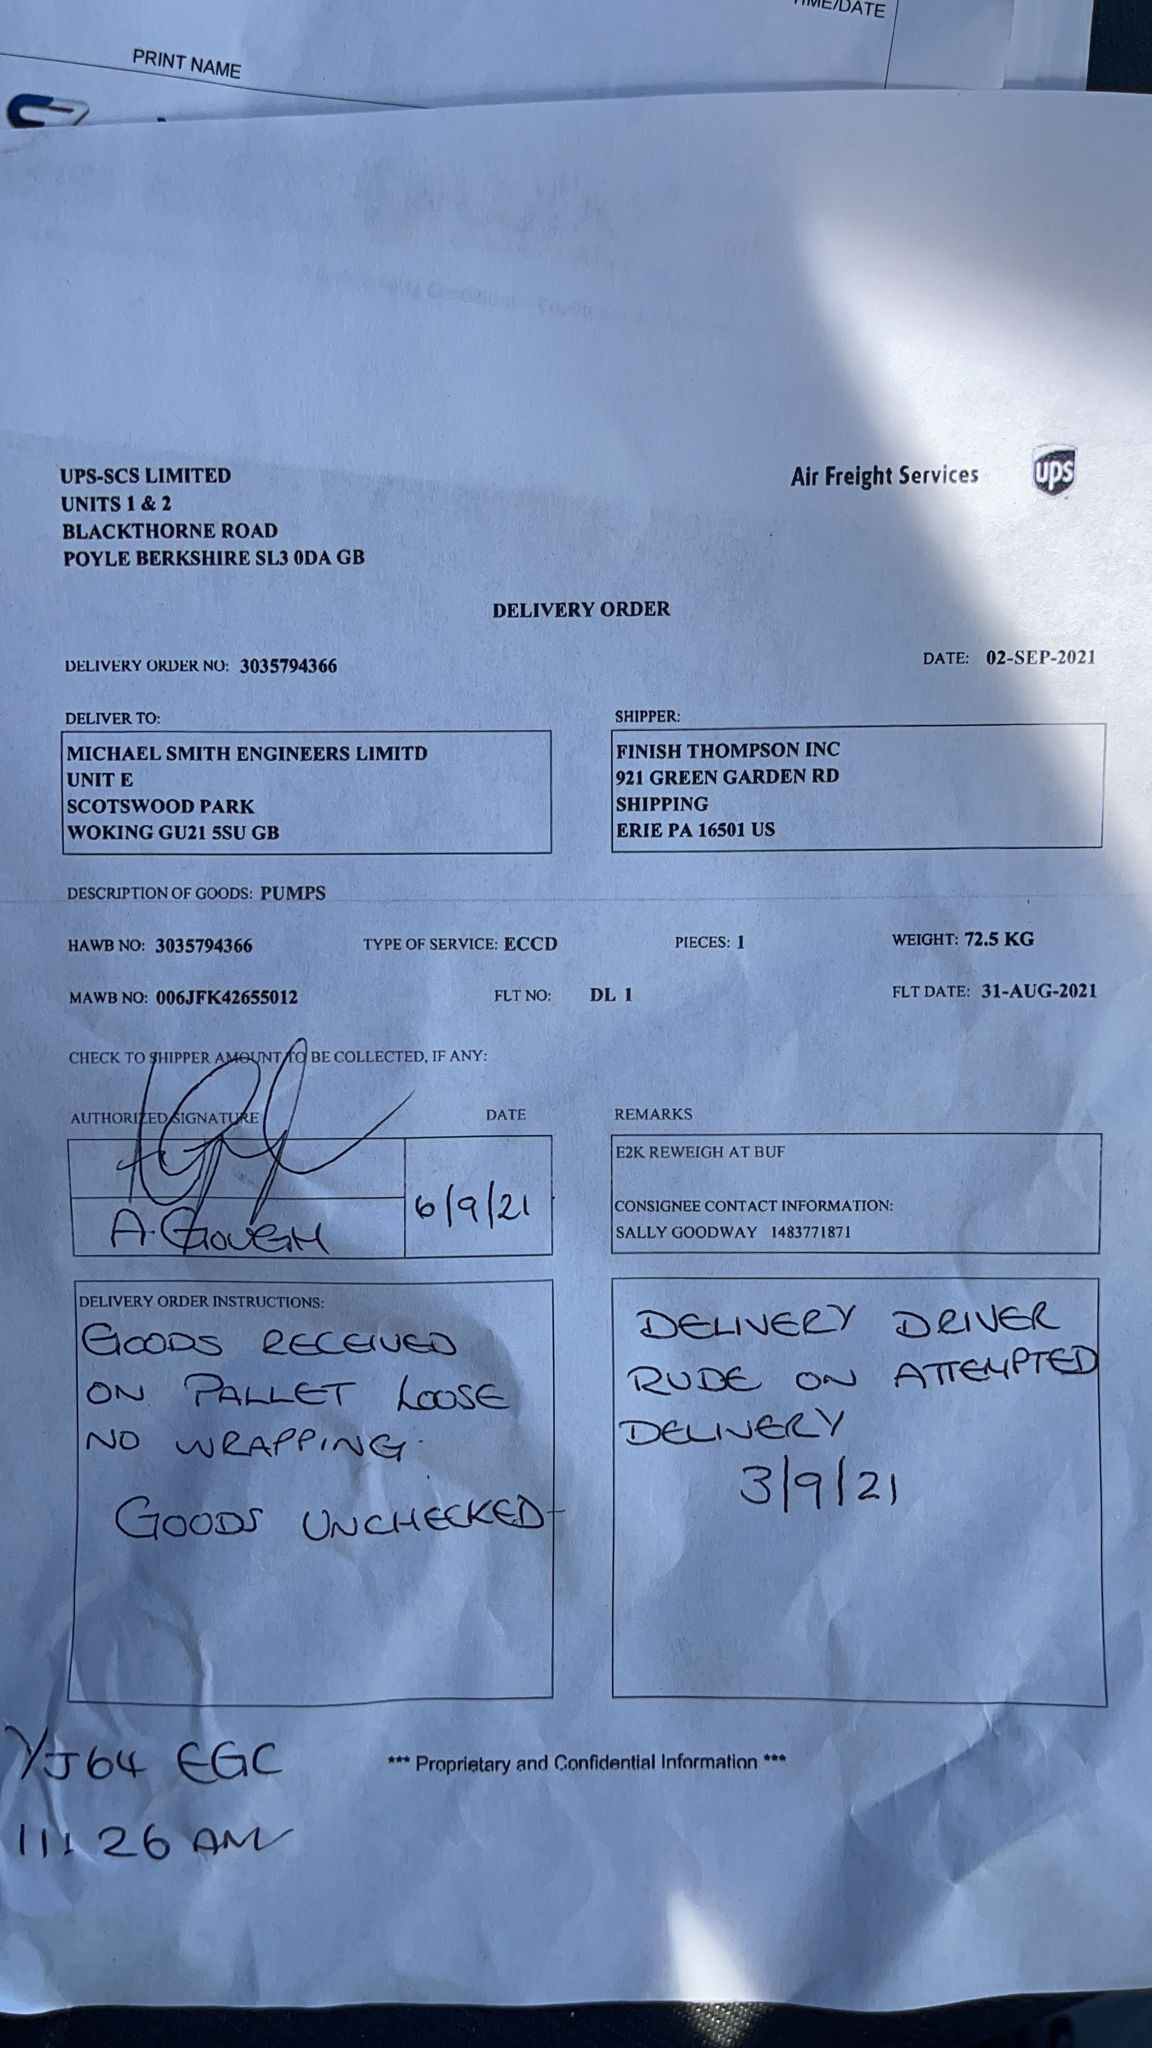 PRINT NAME
UPS-SCS LIMITED
UNITS 1 & 2
BLACKTHORNE ROAD
POYLE BERKSHIRE SL3 0DA GB
Air Freight Services
ups
DELIVERY ORDER
DELIVERY ORDER NO: 3035794366
DATE: 02-SEP-2021
DELIVER TO:
MICHAEL SMITH ENGINEERS LIMITD
UNIT E
SCOTSWOOD PARK
WOKING GU21 5SU GB
SHIPPER:
FINISH THOMPSON INC
921 GREEN GARDEN RD
SHIPPING
ERIE PA 16501 US
DESCRIPTION OF GOODS: PUMPS
HAWB NO: 3035794366 TYPE OF SERVICE: ECCD PIECES: 1 WEIGHT: 72.5 KG
MAWB NO: 006JFK42655012 FLT NO: DL 1 FLT DATE: 31-AUG-2021
CHECK TO SHIPPER AMOUNT TO BE COLLECTED, IF ANY:
AUTHORIZED SIGNATURE DATE
A. GOUGH
6/9/21
REMARKS
E2K REWEIGH AT BUF
CONSIGNEE CONTACT INFORMATION:
SALLY GOODWAY 1483771871
DELIVERY ORDER INSTRUCTIONS:
GOODS RECEIVED
ON PALLET LOOSE
NO WRAPPING.
GOODS UNCHECKED
DELIVERY DRIVER
RUDE ON ATTEMPTED
DELIVERY
3/9/21
YJ64 EGC
11:26 AM
*** Proprietary and Confidential Information ***